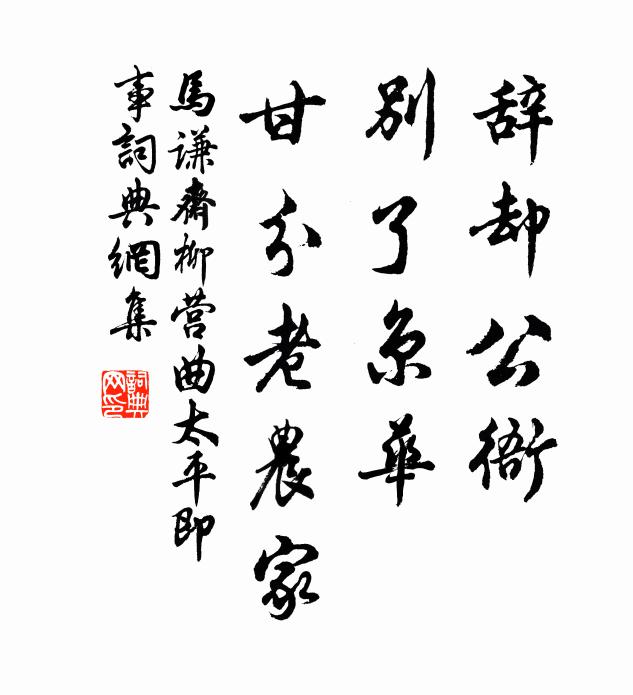 辞却公衙
别了京華
甘分老農家
馬謙齋柳营曲太平即
事詞典網集
詞典
网印